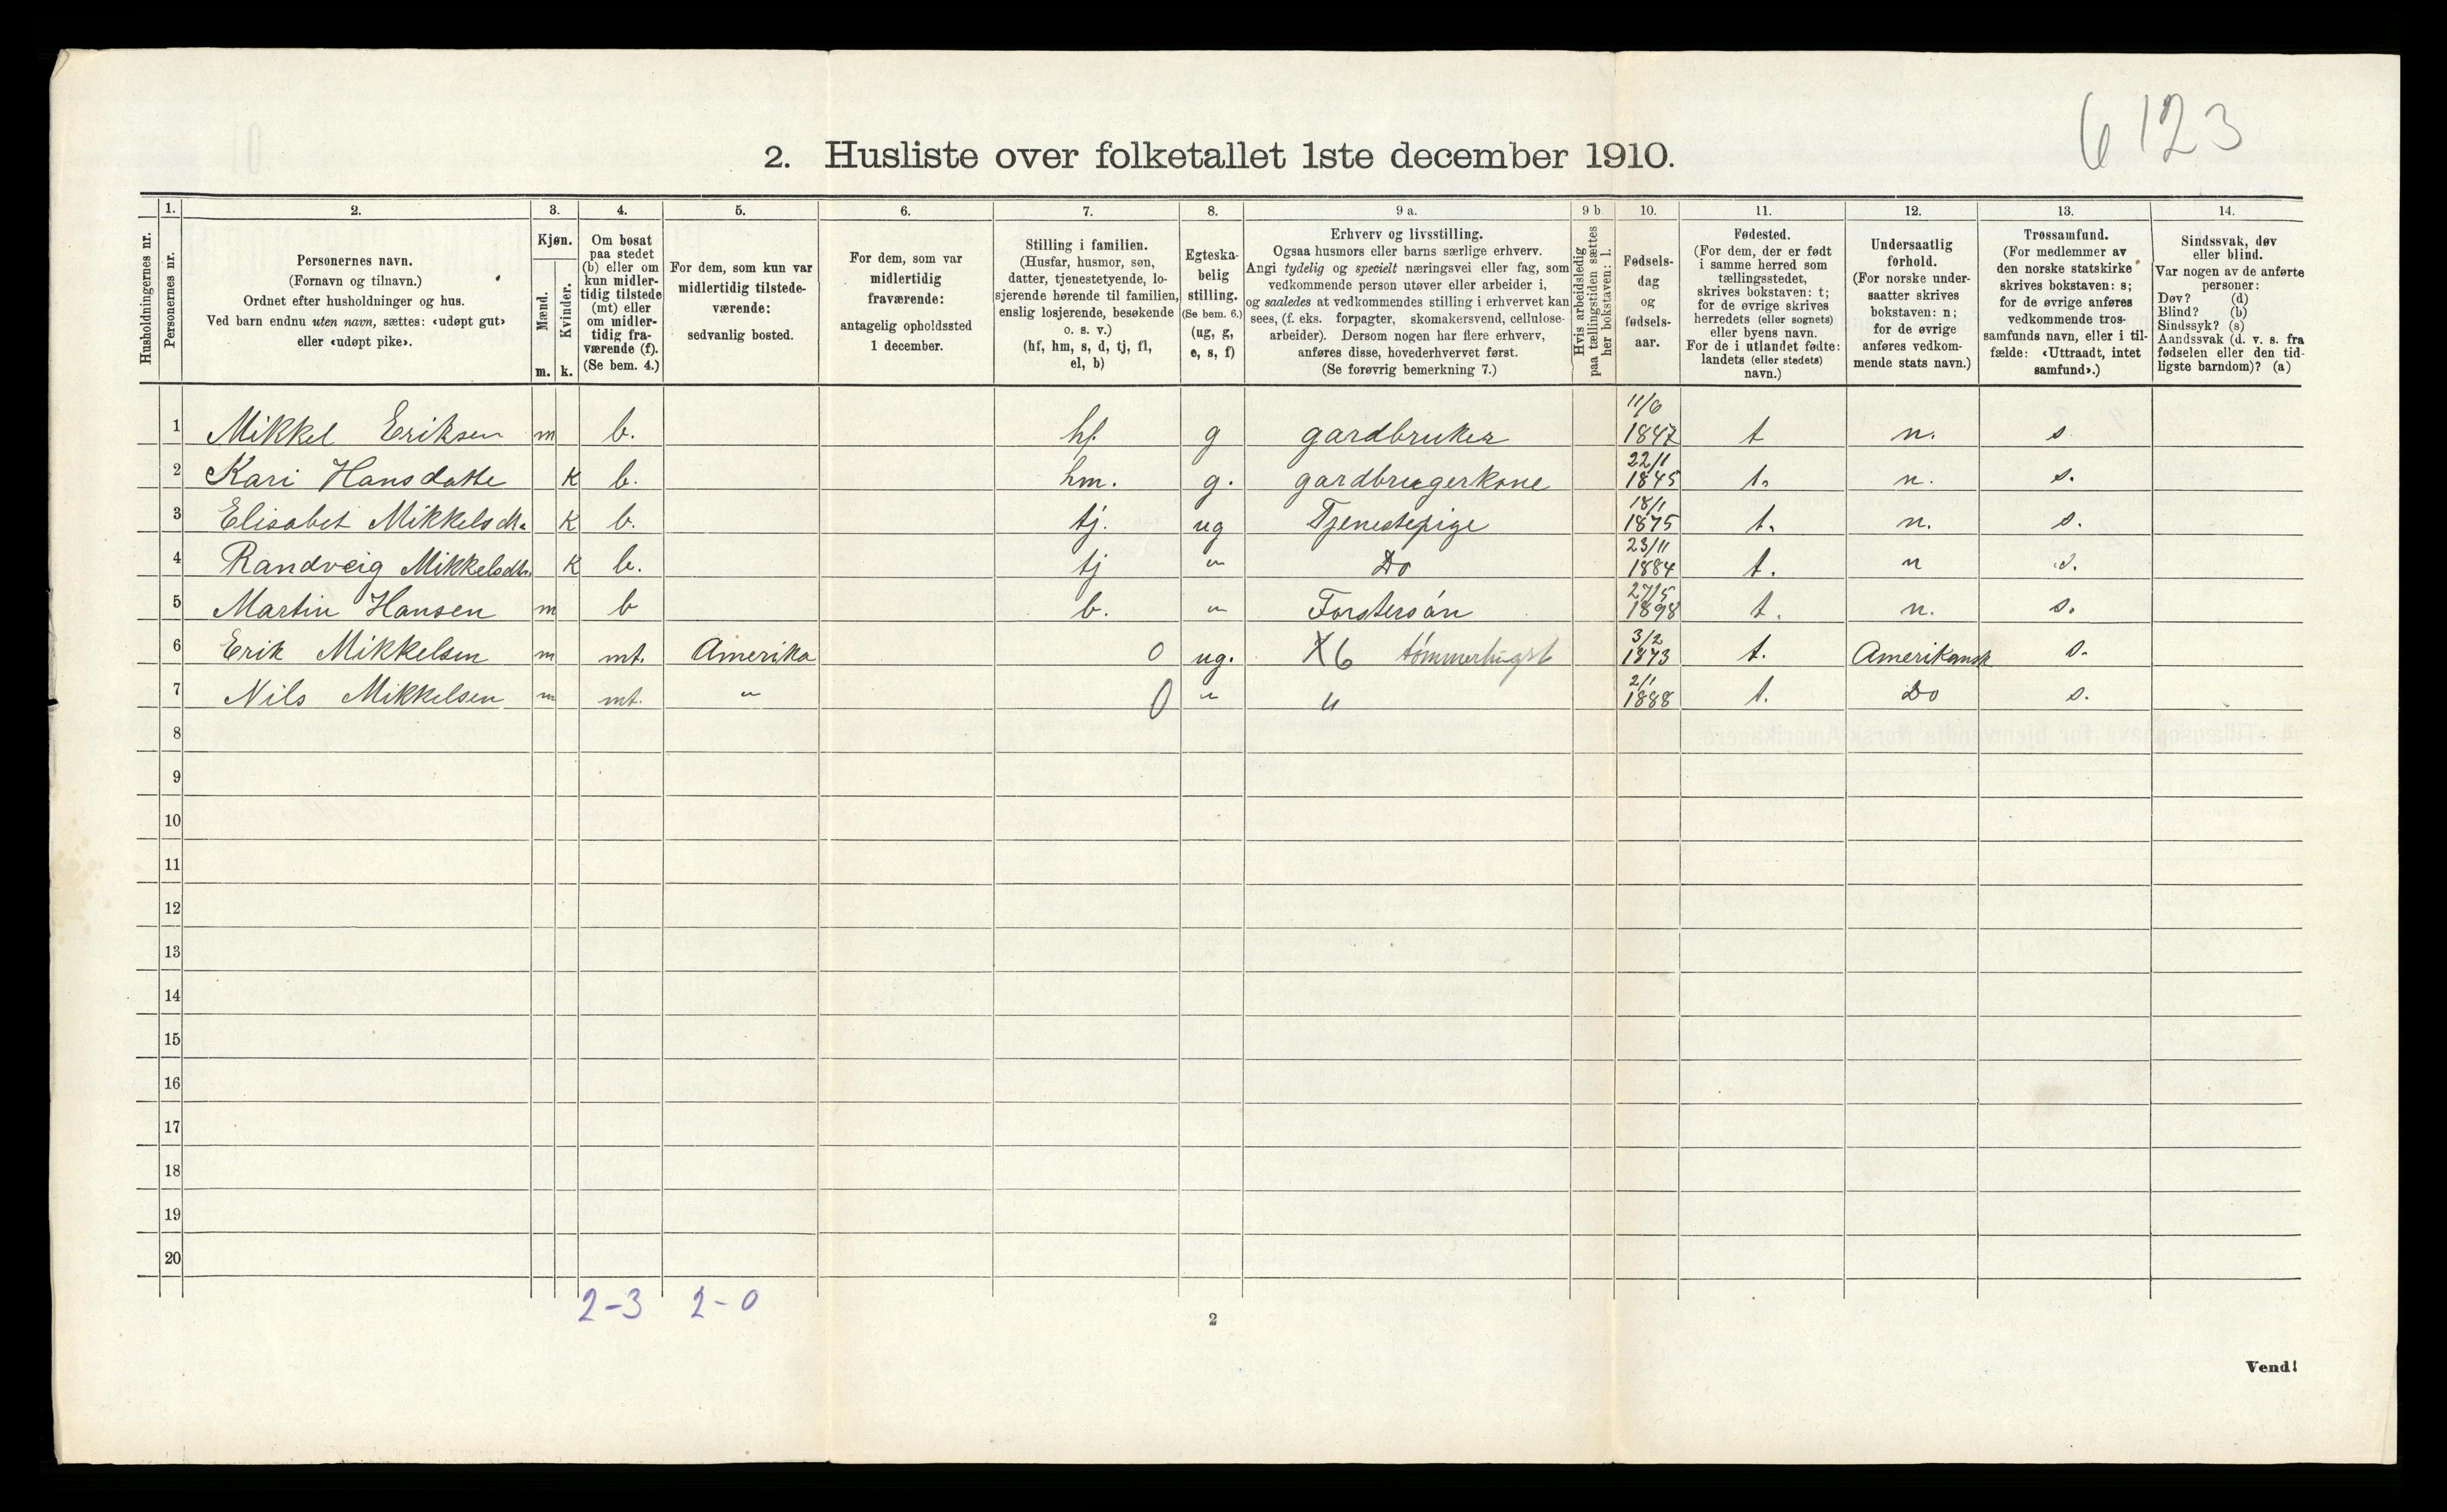 6 123
2. Husliste over folketallet 1ste december 1910.
Husholdningernes nr.
1.
Personernes nr.
2.
Personernes navn.
(Fornavn og tilnavn.)
Ordnet efter husholdninger og hus.
Ved barn endnu uten navn, sættes: «udøpt gut»
eller «udøpt pike».
3.
Kjøn.
Mænd.
Kvinder.
m. k.
4.
Om bosat
paa stedet
(b) eller om
kun midler-
tidig tilstede
(mt) eller
om midler-
tidig fra-
værende (f).
(Se bem. 4.)
5.
For dem, som kun var
midlertidig tilstede-
værende:
sedvanlig bosted.
6.
For dem, som var
midlertidig
fraværende:
antagelig opholdssted
1 december.
7.
Stilling i familien.
(Husfar, husmor, søn,
datter, tjenestetyende, lo-
sjerende hørende til familien,
enslig losjerende, besøkende
o. s. v.)
(hf, hm, s, d, tj, fl,
el, b)
8.
Egteska-
belig
stilling.
(Se bem. 6.)
(ug, g,
e, s, f)
9 a.
Erhverv og livsstilling.
Ogsaa husmors eller barns særlige erhverv.
Angi tydelig og specielt næringsvei eller fag, som
vedkommende person utøver eller arbeider i,
og saaledes at vedkommendes stilling i erhvervet kan
sees, (f. eks. forpagter, skomakersvend, cellulose-
arbeider). Dersom nogen har flere erhverv,
anføres disse, hovederhvervet først.
(Se forøvrig bemerkning 7.)
9 b
Hvis arbeidsledig
paa tællingstiden sættes
her bokstaven: l.
10.
Fødsels-
dag
og
fødsels-
aar.
11.
Fødested.
(For dem, der er født
i samme herred som
tællingsstedet,
skrives bokstaven: t;
for de øvrige skrives
herredets (eller sognets)
eller byens navn.
For de i utlandet fødte:
landets (eller stedets)
navn.)
12.
Undersaatlig
forhold.
(For norske under-
saatter skrives
bokstaven: n;
for de øvrige
anføres vedkom-
mende stats navn.)
13.
Trossamfund.
(For medlemmer av
den norske statskirke
skrives bokstaven: s;
for de øvrige anføres
vedkommende tros-
samfunds navn, eller i til-
fælde: «Uttraadt, intet
samfund».)
14.
Sindssvak, døv
eller blind.
Var nogen av de anførte
personer:
Døv? (d)
Blind? (b)
Sindssyk? (s)
Aandssvak (d. v. s. fra
fødselen eller den tid-
ligste barndom)? (a)
1 Mikkel Eriksen m b. hf. g gardbruker 11/6 1847 t n. s.
2 Kari Hansdatte k b. hm. g. gardbrugerkone 22/1 1845 t. n. s.
3 Elisabet Mikkelsdtr. k b. tj. ug Tjenestepige 18/1 1875 t. n. s.
4 Randveig Mikkelsdtr. k b. tj " Do 23/11 1884 t. n s.
5 Martin Hansen m b b. " Forstersön 27/5 1898 t. n. s.
6 Erik Mikkelsen m mt. Amerika 0 ug. X6 tømmerhugst 3/2 1873 t. Amerikansk s.
7 Nils Mikkelsen m mt. " 0 " " 2/1 1888 t. Do s.
8
9
10
11
12
13
14
15
16
17
18
19
20
2-3 2-0
2
Vend!